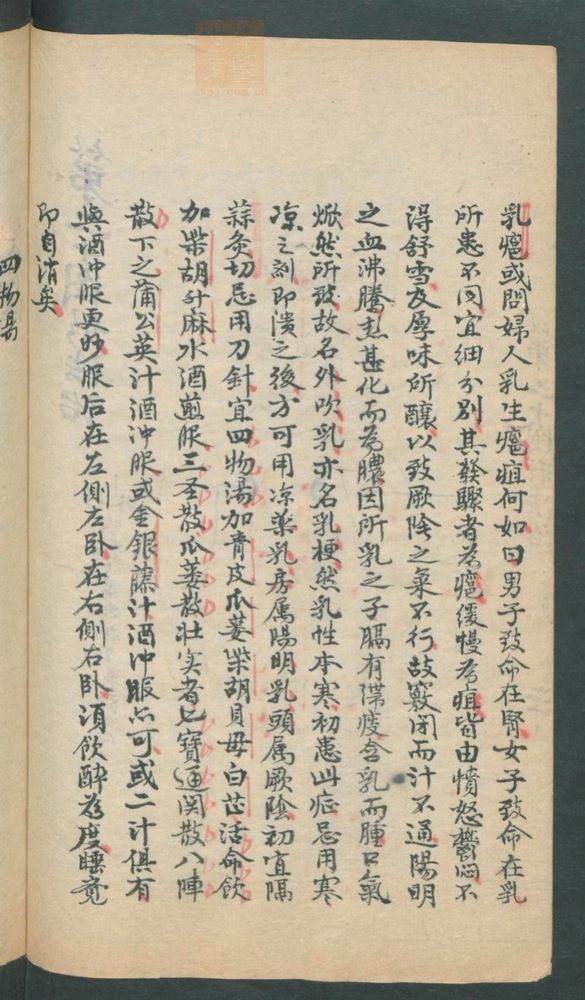 乳癰或問婦人乳生癰疽何如曰男子致命在腎女子致命在乳
所患不同宜細分別其發驟者為癰緩慢為疽皆由憤怒鬱悶不
得舒雪及厚味所釀以致厥陰之氣不行故竅閉而汁不通陽明
之血沸騰热甚化而為膿因所乳之子膈有滞痰含乳而腫口氣
焮然所致故名外吹乳亦名乳梗然乳性本寒初患此症忌用寒
凉之剂即潰之後方可用凉藥乳房属陽明乳頭属厥陰初宜隔
蒜灸切忌用刀針宜四物湯加青皮瓜蒌柴胡貝母白芷活命飲
加柴胡升麻水酒煎服三圣散瓜蒌散壮实者七寶通関散八陣
散下之蒲公英汁酒冲服或金銀藤汁酒冲服亦可或二汁俱有
與酒冲服更妙服后在左側左卧在右側右卧須飲醉為度睡竟
即自消矣
四物易